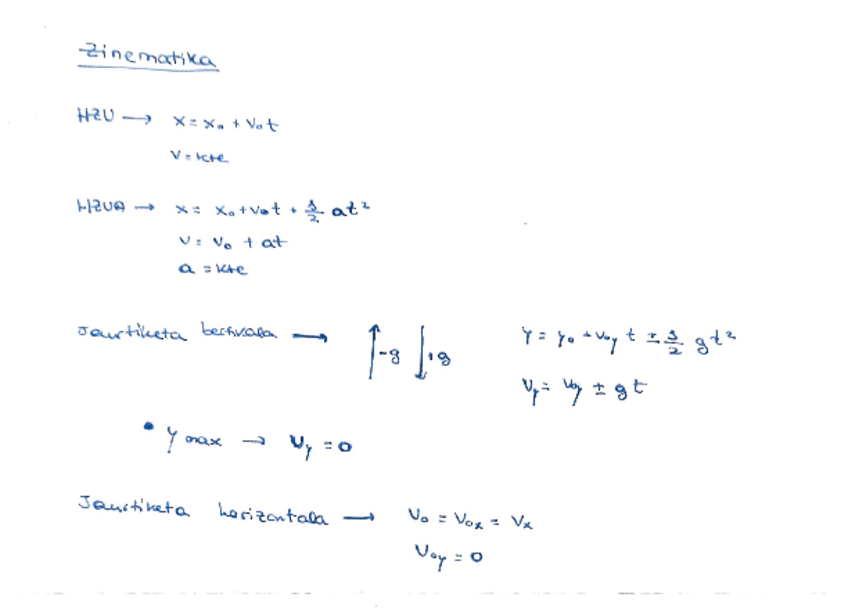 Zinematika
HZU → x = x₀ + v₀t
v = kte
HZUA → x = x₀ + v₀t + 1/2 at²
v = v₀ + at
a = kte
Jaurtiketa bertikala → ↑-g ↓+g y = y₀ + v₀y t ± 1/2 gt²
vy = v₀y ± gt
• y max → vy = 0
Jaurtiketa horizontala → v₀ = v₀x = vx
v₀y = 0